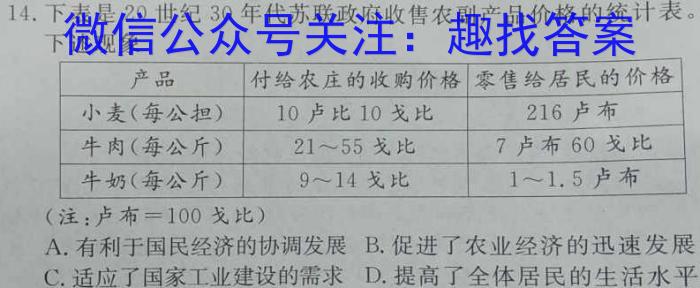 14.下表是20世纪30年代苏联政府收售农副产品价格的统计表。
微信公众号关注：趣找答案
下述现象
产品 付给农庄的收购价格 零售给居民的价格
小麦(每公担) 10卢比10戈比 216卢布
牛肉(每公斤) 21～55戈比 7卢布60戈比
牛奶(每公斤) 9～14戈比 1～1.5卢布
(注:卢布=100戈比)
A.有利于国民经济的协调发展 B.促进了农业经济的迅速发展
C.适应了国家工业建设的需求 D.提高了全体居民的生活水平